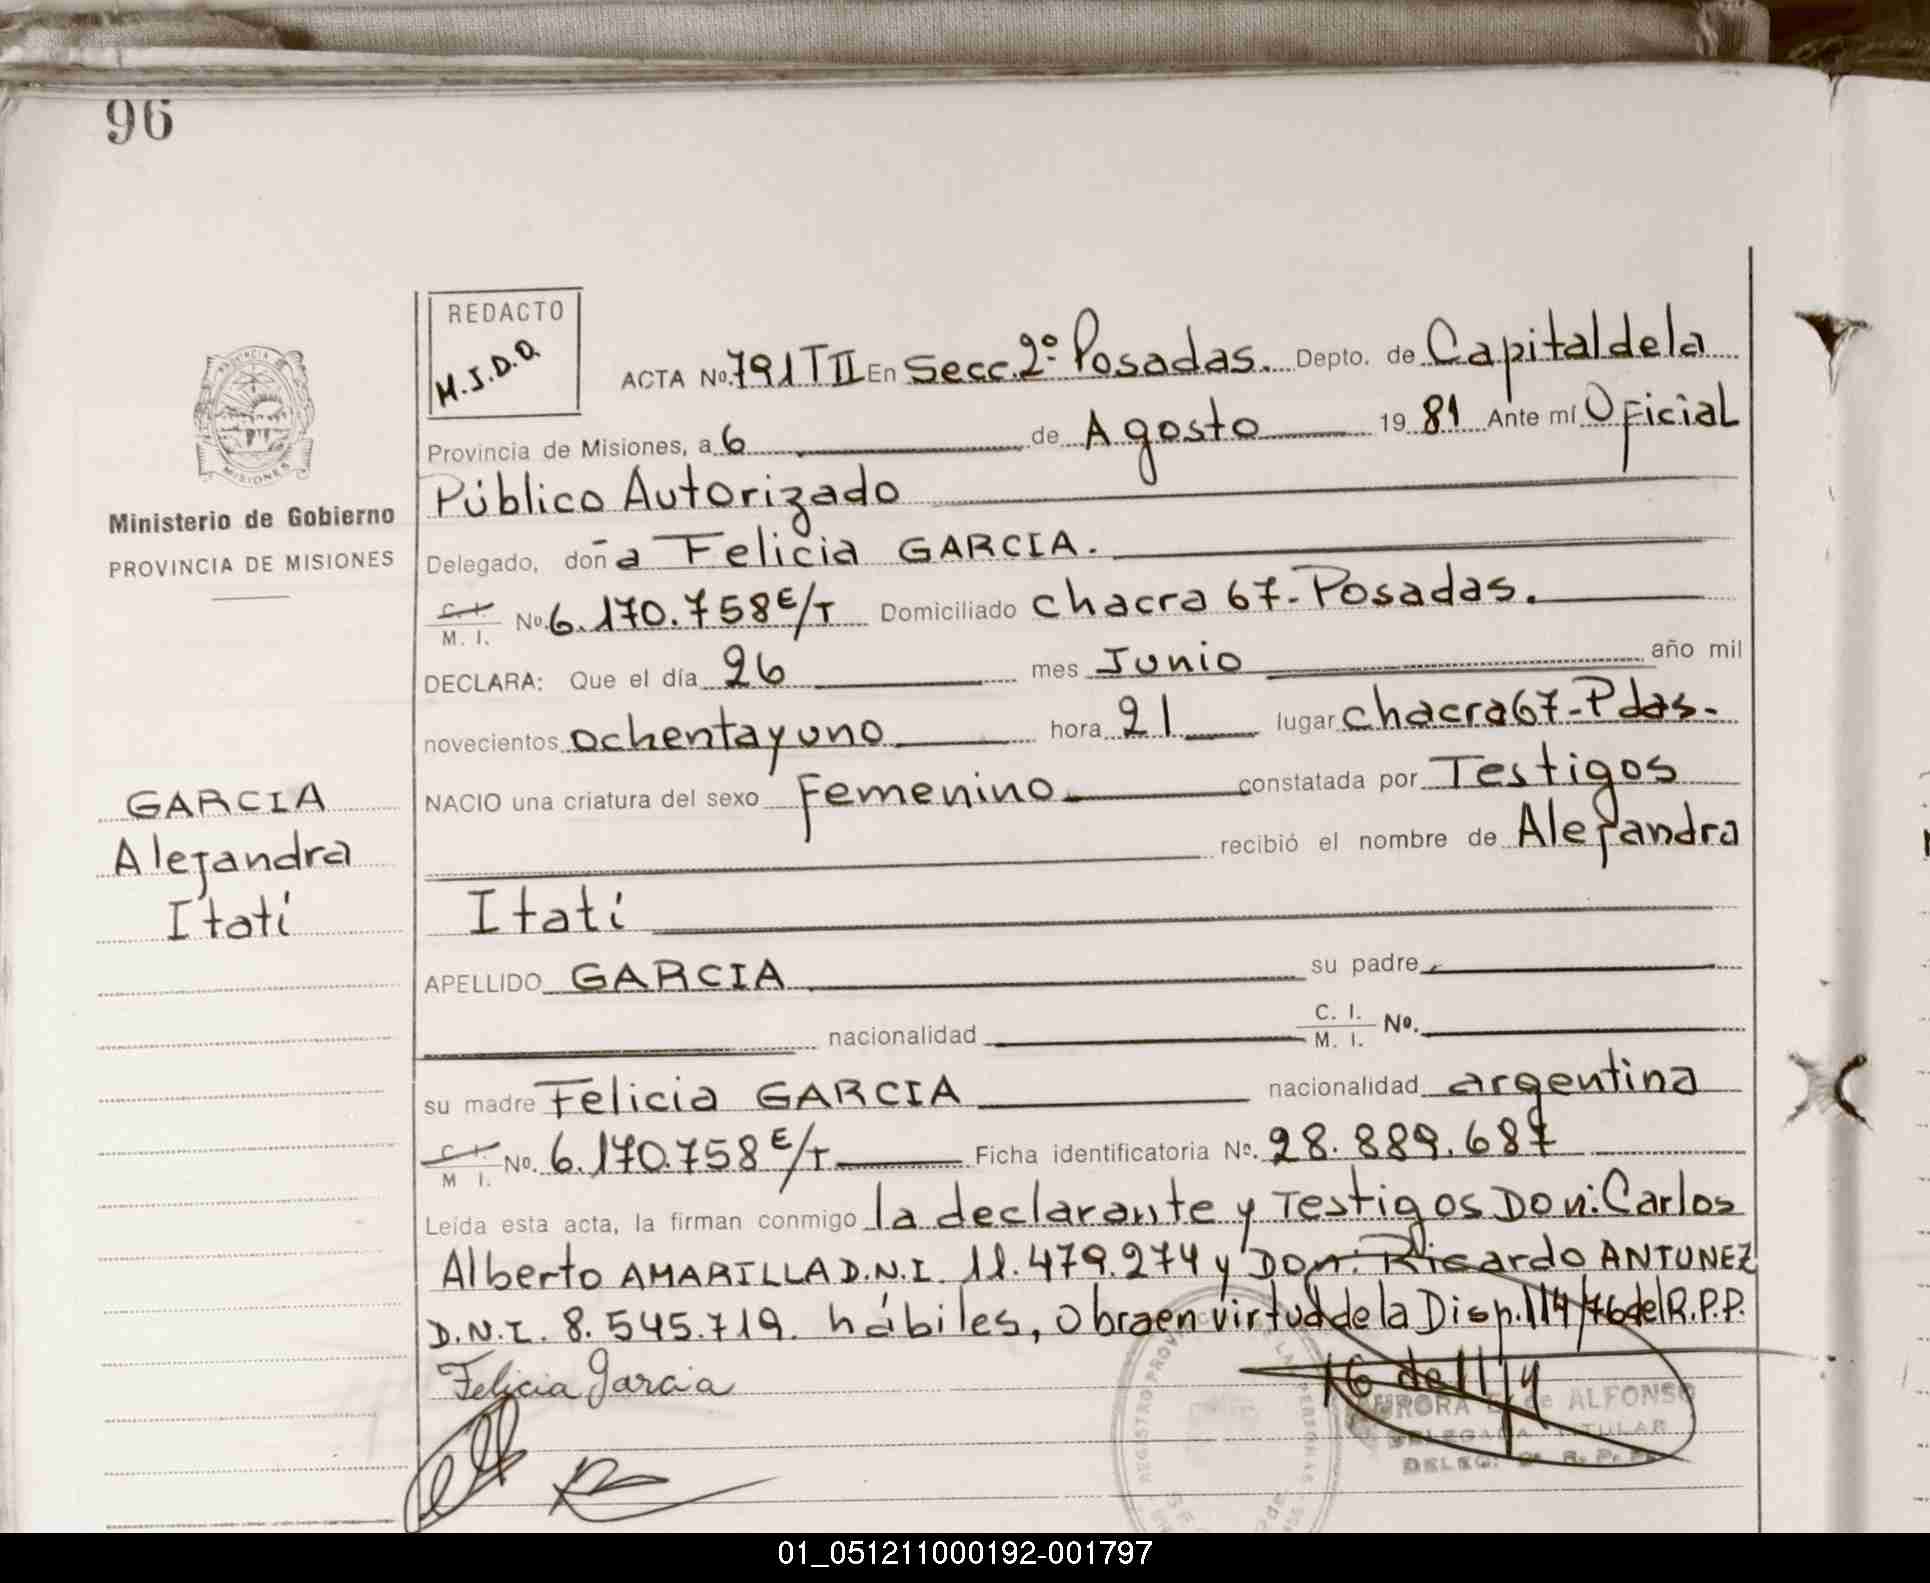 96
REDACTO
M.J.D.D.
ACTA No. 791 T II En Secc. 2º Posadas. Depto. de Capital de la
Provincia de Misiones, a 6 de Agosto 19 81 Ante mí Oficial
Público Autorizado
PROVINCIA
MISIONES
Ministerio de Gobierno
PROVINCIA DE MISIONES
Delegado, doña Felicia GARCIA.
C. I.
M. I. No. 6.170.758 E/T Domiciliado chacra 67-Posadas.
DECLARA: Que el día 26 mes Junio año mil
novecientos ochenta y uno hora 21 lugar chacra 67-Pdas-
GARCIA
Alejandra
Itatí
NACIO una criatura del sexo Femenino constatada por Testigos
recibió el nombre de Alejandra
Itatí
APELLIDO GARCIA su padre
nacionalidad C. I.
M. I. No.
su madre Felicia GARCIA nacionalidad argentina
C. I.
M I. No. 6.170.758 E/T Ficha identificatoria No. 28.889.687
Leída esta acta, la firman conmigo la declarante y Testigos Don: Carlos
Alberto AMARILLA D.N.I. 11.479.274 y Don: Ricardo ANTUNEZ
D.N.I. 8.545.719. hábiles, Obra en virtud de la Disp. 114/76 del R.P.P.
Felicia Garcia
16 de
REGISTRO PROV LA PERSONAS
AURORA de ALFONSO
DELEGADA TITULAR
DELEG. R. P. P.
01_051211000192-001797